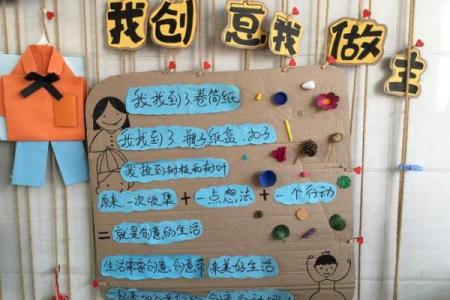 我创意我做主
我找到了卷筒纸
我找到了瓶子纸盒、扣子
我捡到树枝和树叶
原来一次收集+一点想法+一个行动
=就是创意的生活
生活需要创意,创意带来美好生活